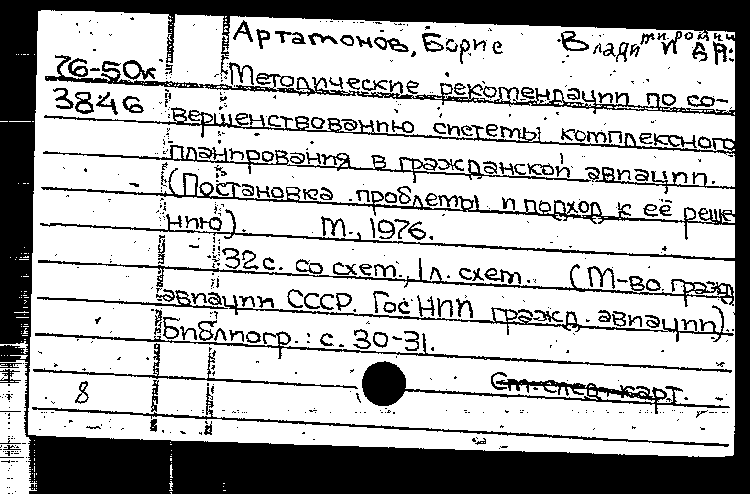 Артамонов, Борис Влади миrович и др.
76-50к
Методические рекомендации по со-
3846
вершенствованию системы комплексного
планирования в гражданской авиации.
(Постановка проблемы и подход к её реше
нию). М., 1976.
32 с. со схем., 1 л. схем. (М-во гражд
авиации СССР. ГосНИИ гражд. авиации).
Библиогр.: с. 30-31.
См. след. карт.
8